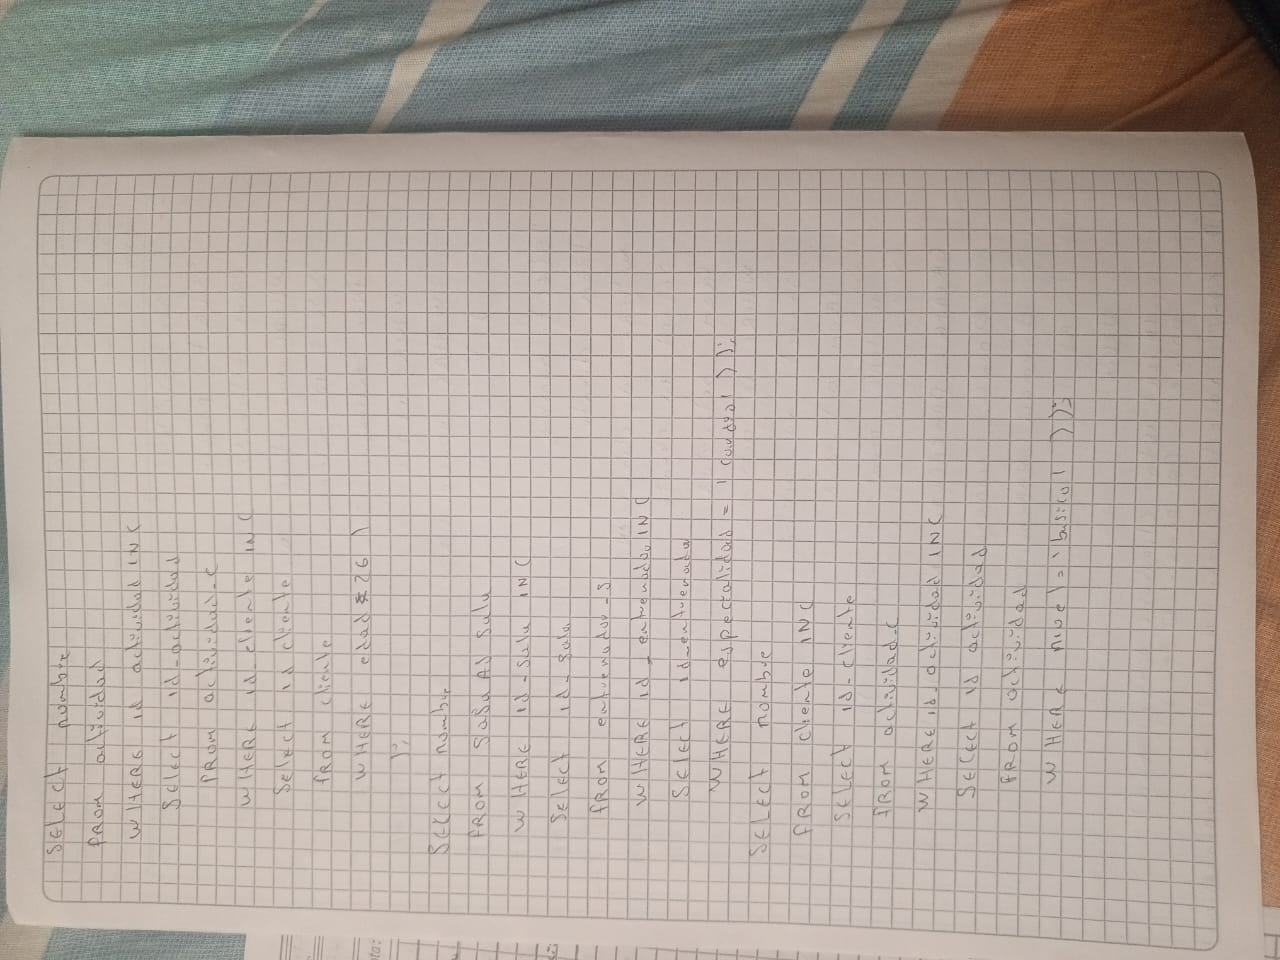 SELECT nombre
FROM actividad
WHERE id_actividad IN (
SELECT id_actividad
FROM actividad_C
WHERE id_cliente IN (
SELECT id cliente
FROM cliente
WHERE edad 26 )
);
SELECT nombre
FROM AS Sala
WHERE id_Sala IN (
SELECT id_Sala
FROM entrenador_S
WHERE id_entrenador IN (
SELECT id_entrenador
WHERE especialidad = ' ' ));
SELECT nombre
FROM cliente IN (
SELECT id_cliente
FROM actividad_C
WHERE id_actividad IN (
SELECT id actividad
FROM actividad
WHERE nivel = 'basico' ));